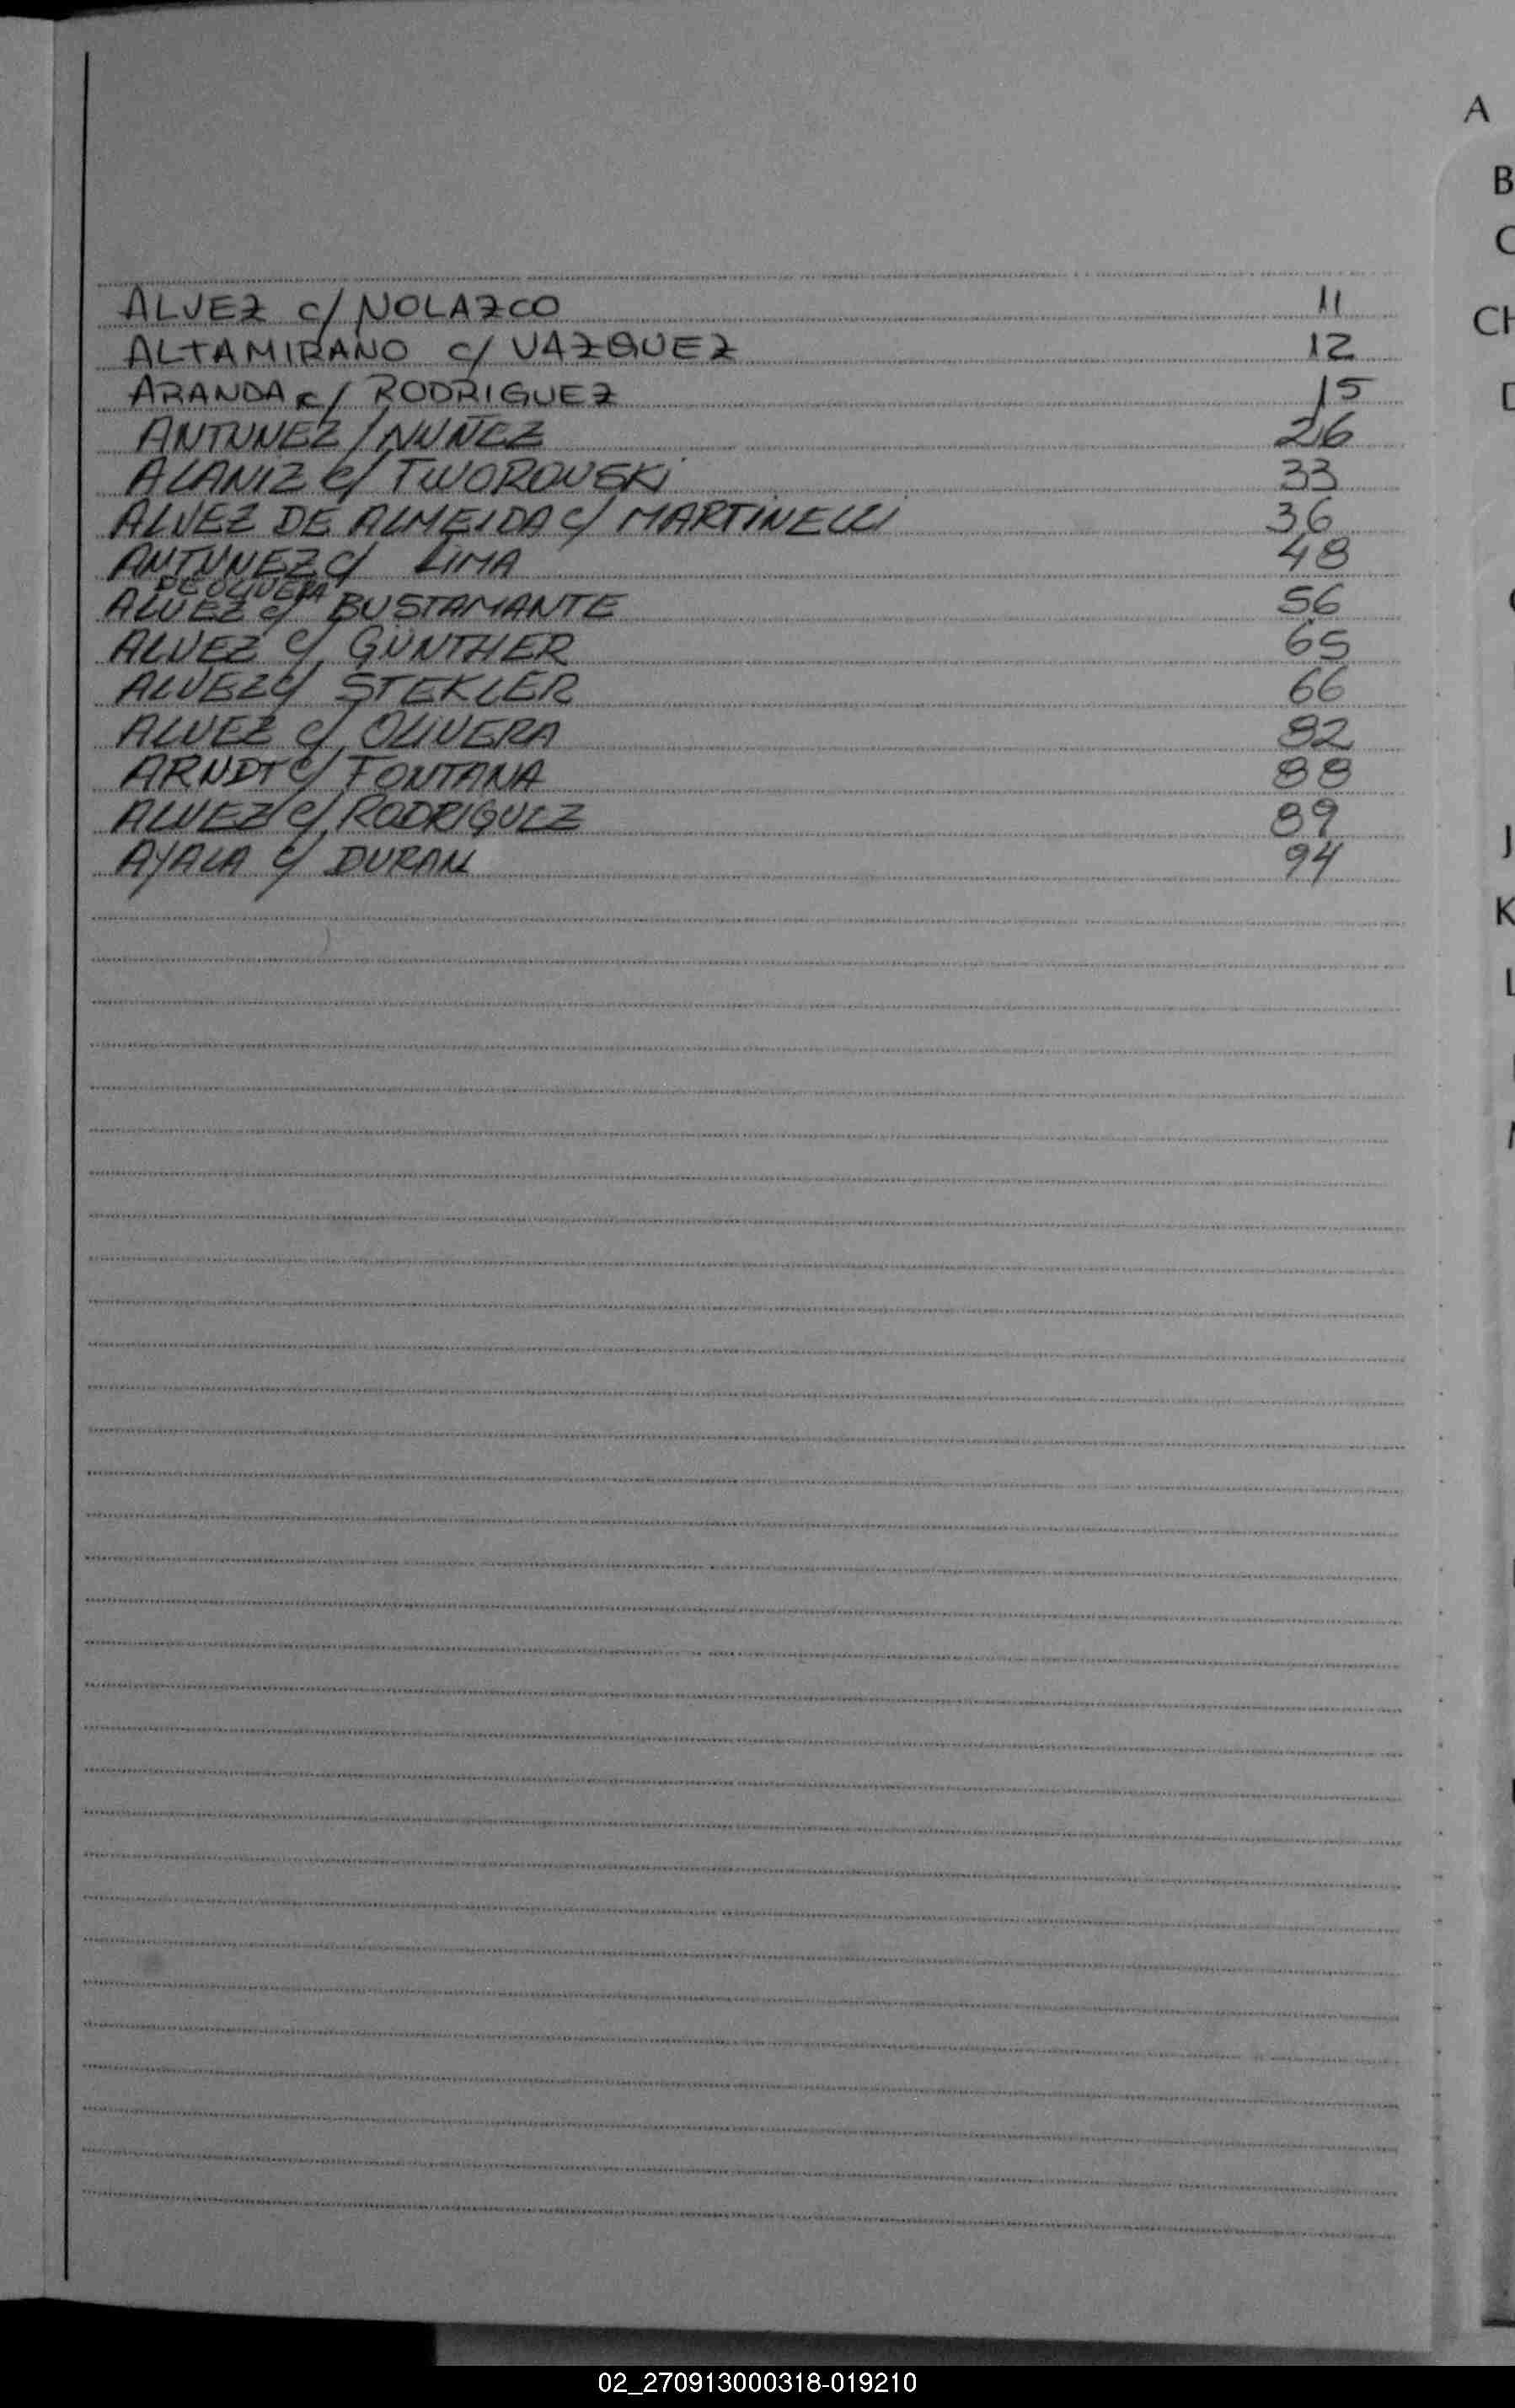 A
B
C
CH
ALVEZ c/ NOLAZCO 11
ALTAMIRANO c/ VAZQUEZ 12
ARANDA c/ RODRIGUEZ 15
ANTUNEZ / NUÑEZ 26
ALANIZ c/ TWOROVSKi 33
ALVEZ DE ALMEIDA c/ MARTINELLI 36
ANTUNEZ c/ LIMA 48
DE OLIVERA
ALVEZ c/ BUSTAMANTE 56
ALVEZ c/ GÜNTHER 65
ALVEZ c/ STEKLER 66
ALVEZ c/ OLIVERA 82
ARNDT c/ FONTANA 88
ALVEZ c/ RODRIGUEZ 89
AYALA c/ DURAN 94
J
K
L
02_270913000318-019210